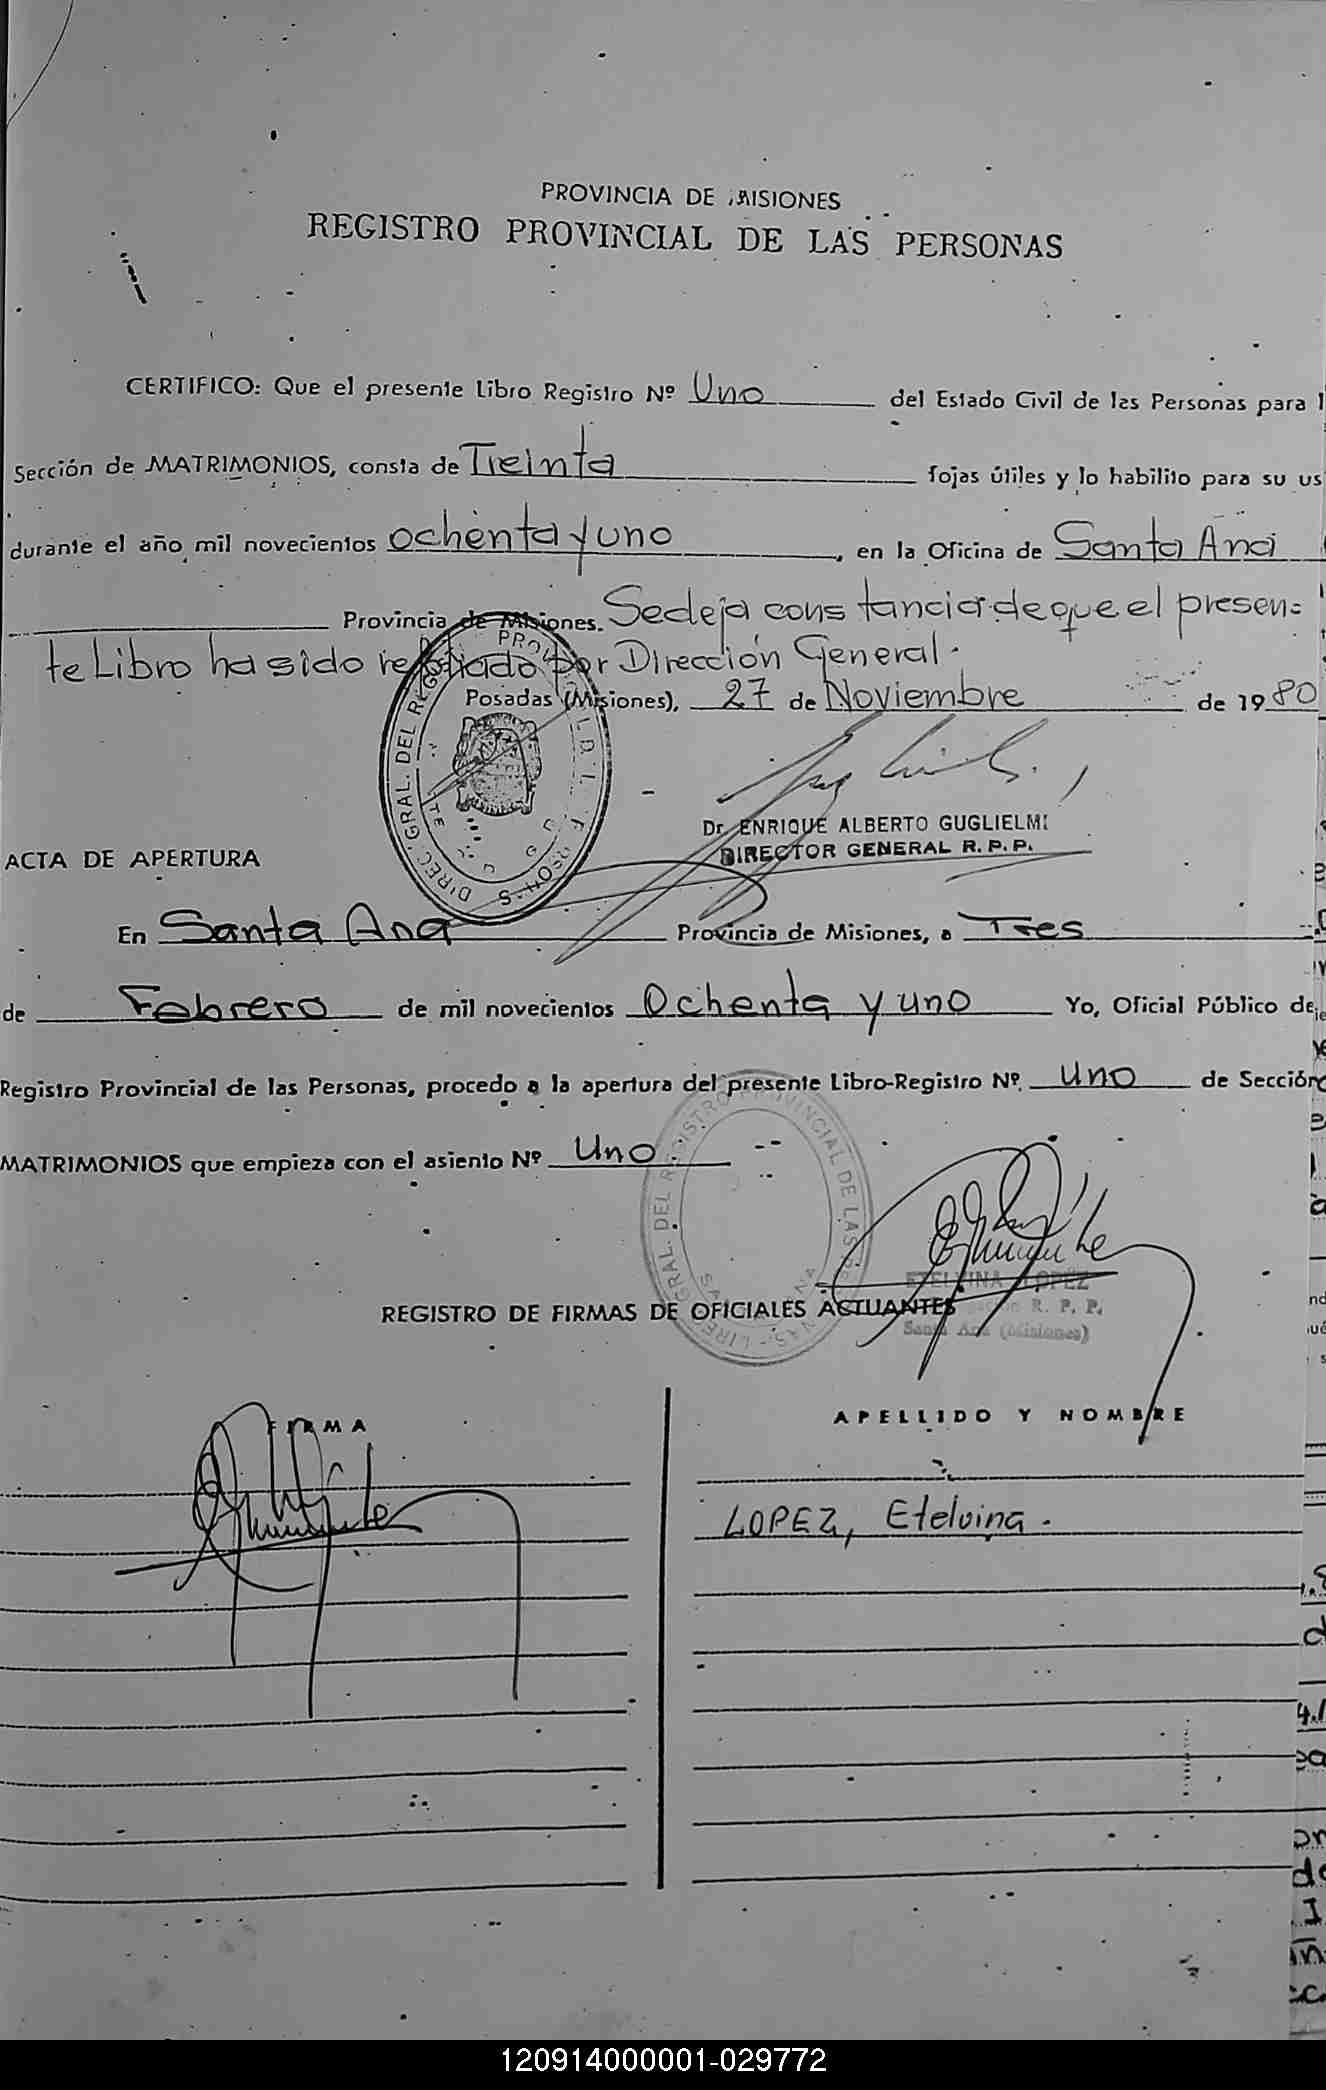 PROVINCIA DE MISIONES
REGISTRO PROVINCIAL DE LAS PERSONAS
CERTIFICO: Que el presente Libro Registro Nº Uno del Estado Civil de las Personas para l
Sección de MATRIMONIOS, consta de Treinta fojas útiles y lo habilito para su us
durante el año mil novecientos ochenta y uno, en la Oficina de Santa Ana
Provincia de Misiones. Se deja constancia de que el presen=
te Libro ha sido refoliado por Dirección General.
Posadas (Misiones), 27 de Noviembre de 1980
Dr. ENRIQUE ALBERTO GUGLIELMI
DIRECTOR GENERAL R. P. P.
ACTA DE APERTURA
En Santa Ana Provincia de Misiones, a Tres
de Febrero de mil novecientos Ochenta y uno Yo, Oficial Público de
Registro Provincial de las Personas, procedo a la apertura del presente Libro-Registro Nº Uno de Sección
MATRIMONIOS que empieza con el asiento Nº Uno.
DIREC. GRAL. DEL REGISTRO PROVINCIAL DE LAS PERSONAS
ETELVINA LOPEZ
R. P. P.
Santa Ana (Misiones)
REGISTRO DE FIRMAS DE OFICIALES ACTUANTES
FIRMA
APELLIDO Y NOMBRE
LOPEZ, Etelvina.
120914000001-029772